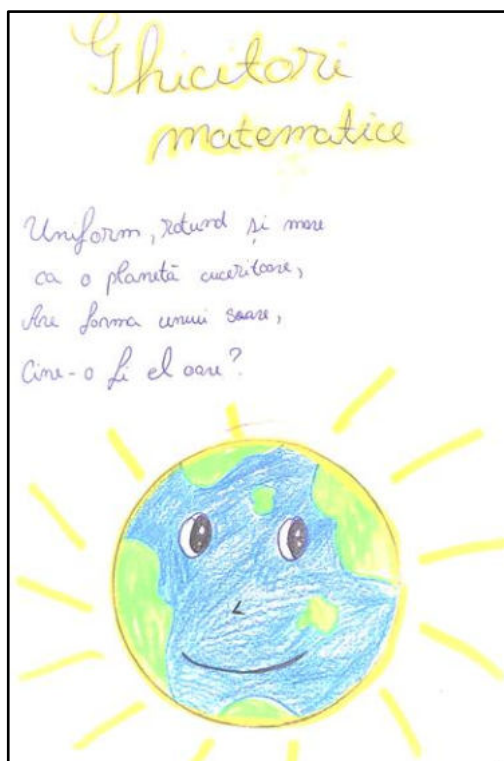 Ghicitori
matematice
Uniform, rotund și mare
ca o planetă cuceritoare,
Are forma unui soare,
Cine-o fi el oare?